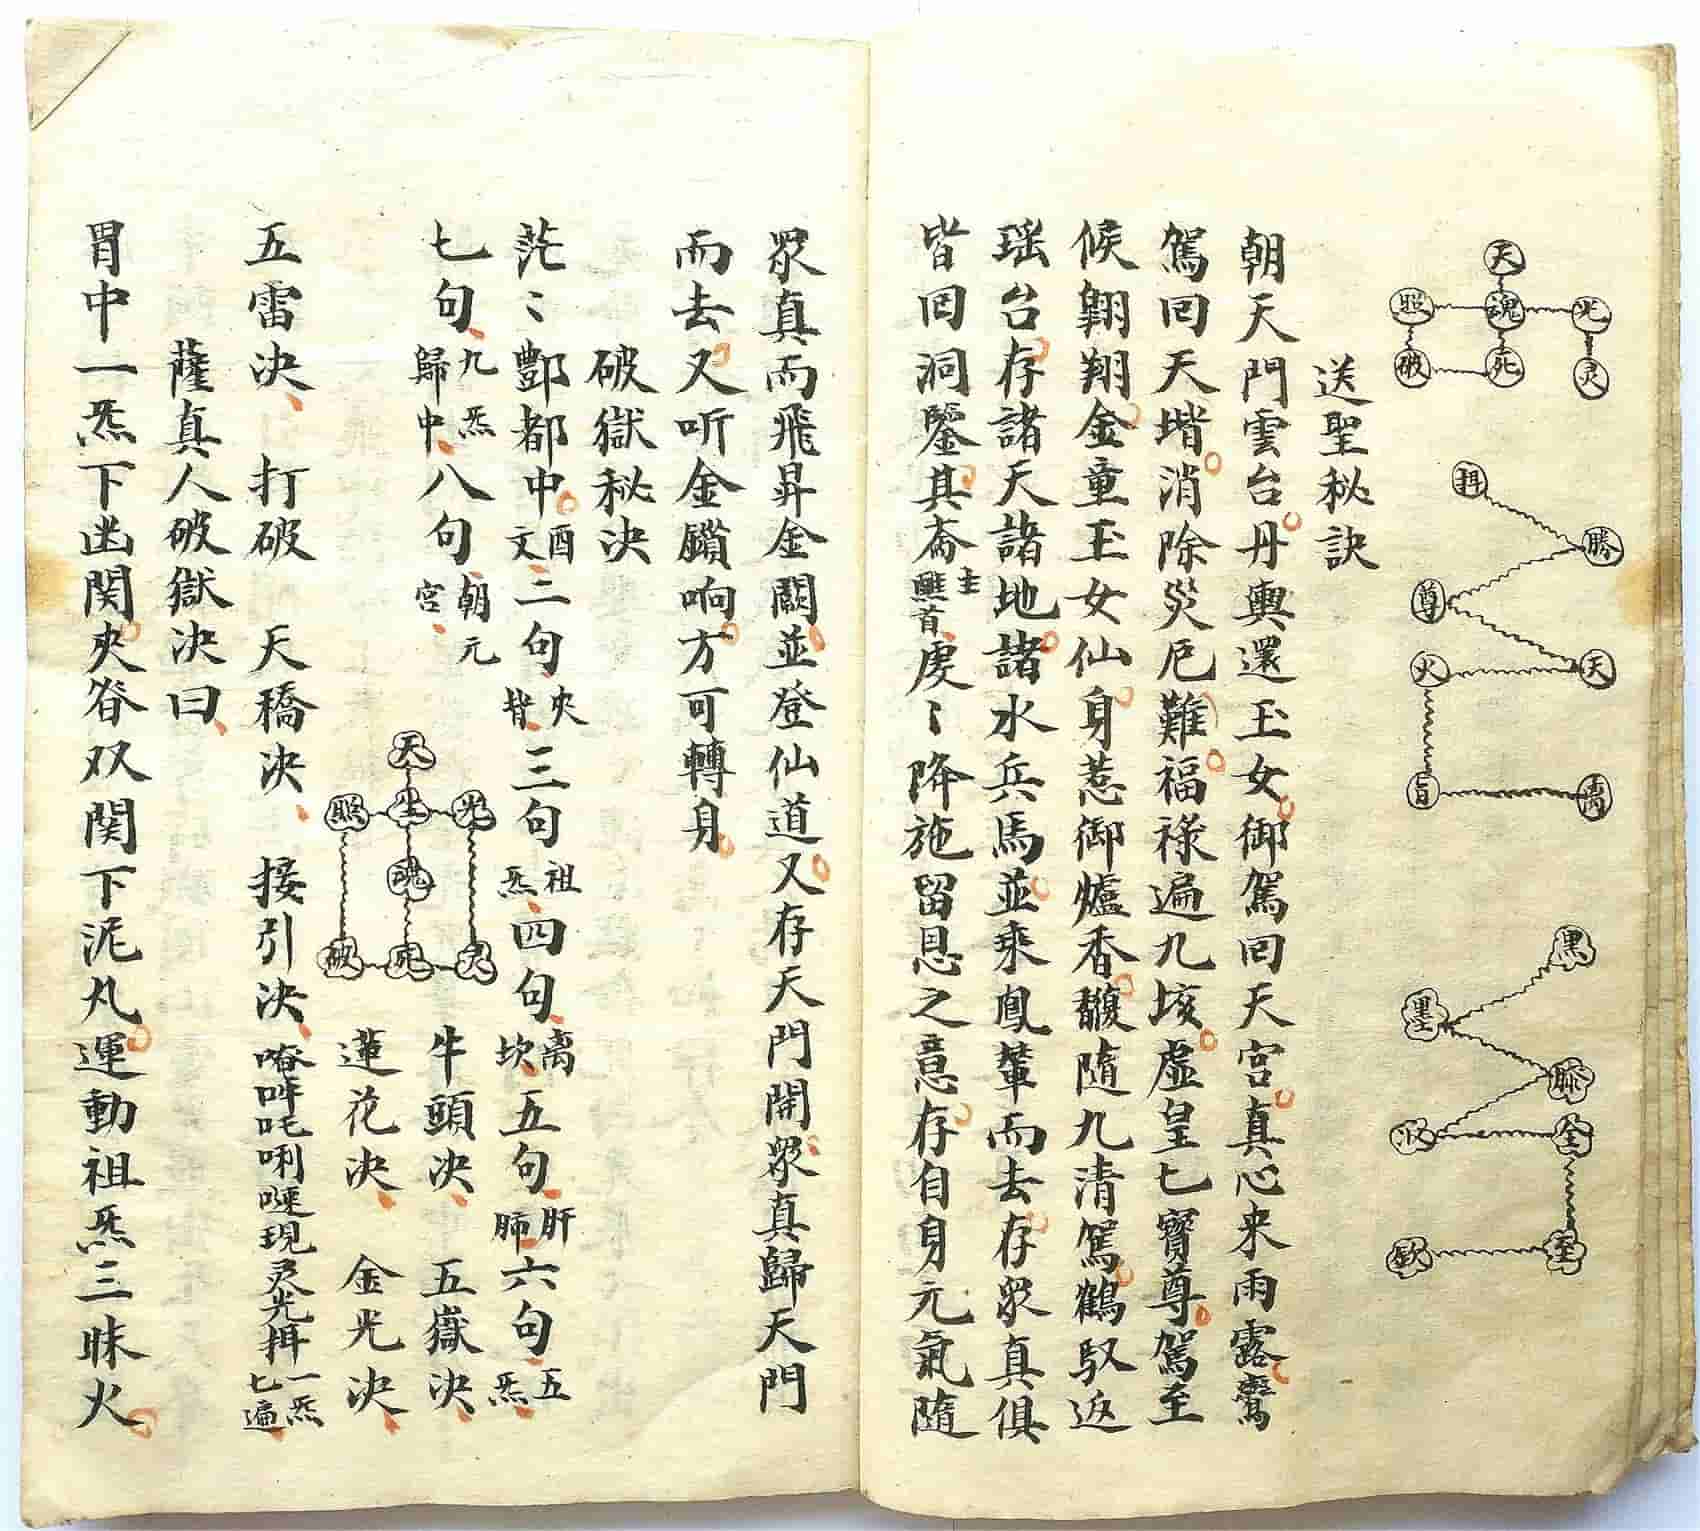 天
照 魂 光
破 死 灵
揖
勝
尊
火 天
旨 离
黑
墨
全
至
欽
送聖秘訣
朝天門雲台丹輿還玉女御駕回天宮真心来雨露鸞
駕回天堦消除災厄難福祿遍九垓虛皇七寶尊駕至
候翱翔金童玉女仙身惹御爐香馥隨九清駕鶴馭返
瑶台存諸天諸地諸水兵馬並乘鳳輦而去存眾真俱
皆回洞鑒其斋主醮首虔〻降施留恩之意存自身元氣隨
眾真而飛昇金闕並登仙道又存天門開眾真歸天門
而去又听金鎖响方可轉身
破獄秘决
茫〻酆都中酉文二句夾背三句祖炁四句离坎五句肝肺六句五炁
七句九炁歸中八句朝元宮
牛頭决 五嶽决
天
照 生 光
魂
破 死 灵
蓮花决 金光决
五雷决 打破 天橋决 接引决 唵吽吒唎㖶現灵光揖一炁七遍
薩真人破獄决曰
胃中一炁下幽関夾脊双関下泥丸運動祖炁三昧火